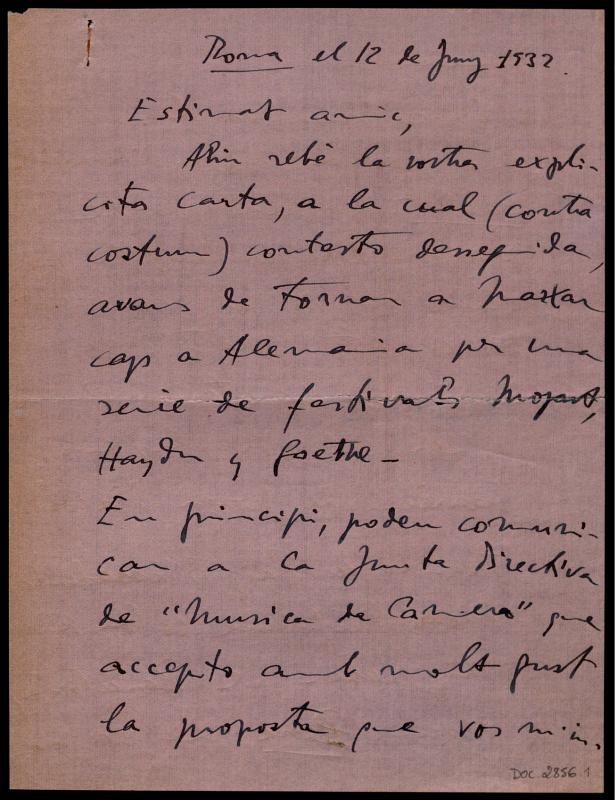 Roma el 12 de Juny 1932.
Estimat amic,
Ahir rebé la vostra explí-
cita carta, a la cual (contra
costum) contesto desseguida,
avans de tornar a marxar
cap a Alemania per una
serie de festivals Mozart,
Haydn y Goethe_
En principi, podeu comuni-
car a la Junta Directiva
de "Musica da Camera" que
accepto amb molt gust
la proposta que vos m'in-
DOC 2856.1